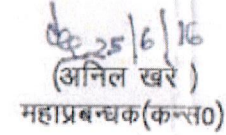 25/6/16
(अनिल खरे )
महाप्रबन्धक(कन्स0)